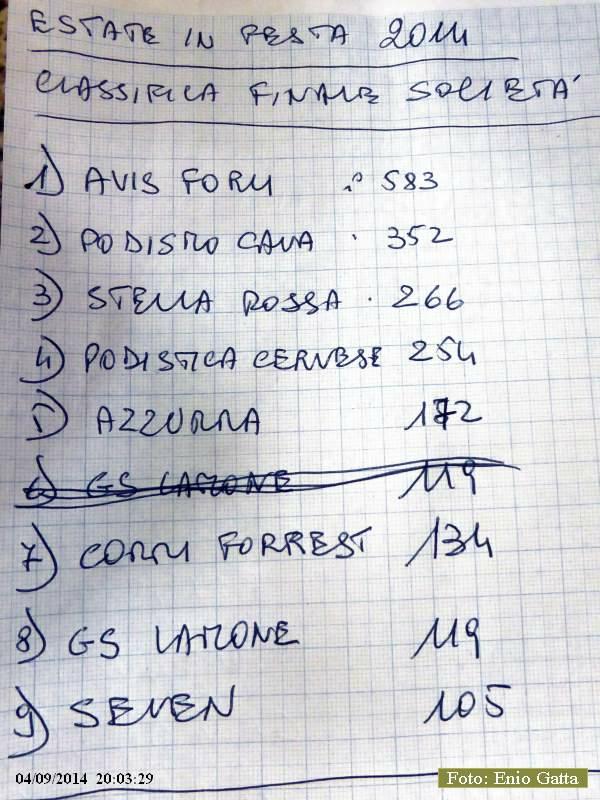 ESTATE IN FESTA 2014
CLASSIFICA FINALE SOCIETÁ
1) AVIS FORLI 583
2) PODISMO CAVA . 352
3) STELLA ROSSA . 266
4) PODISTICA CERVESE 254
5) AZZURRA 172
6) GS LAMONE 119
7) CORRI FORREST 134
8) GS LAMONE 119
9) SEVEN 105
04/09/2014 20:03:29
Foto: Enio Gatta